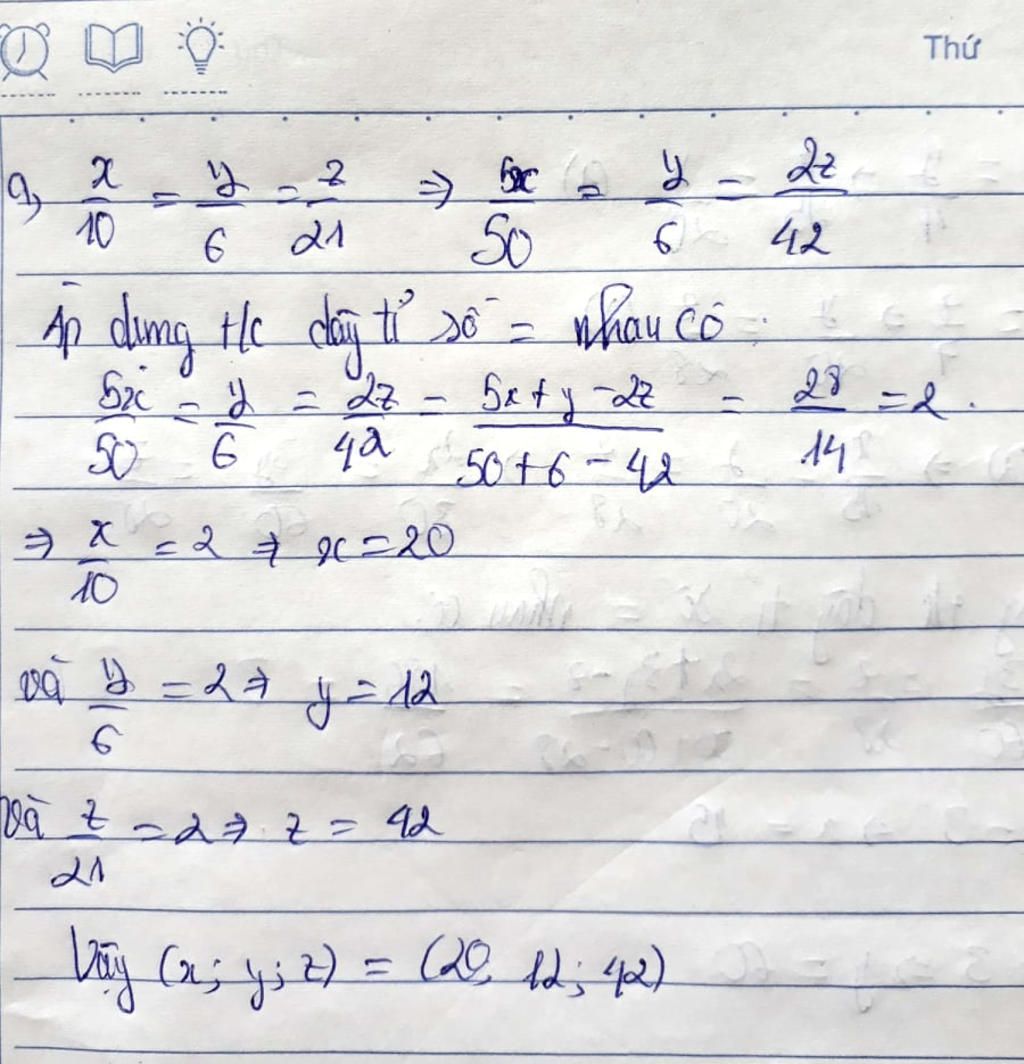 Thứ
a, x/10 = y/6 = z/21 ⇒ 5x/50 = y/6 = 2z/42
Áp dụng t/c dãy tỉ số = nhau có:
5x/50 = y/6 = 2z/42 = (5x + y - 2z)/(50 + 6 - 42) = 28/14 = 2.
⇒ x/10 = 2 ⇒ x = 20
và y/6 = 2 ⇒ y = 12
và z/21 = 2 ⇒ z = 42
Vậy (x; y; z) = (20; 12; 42)